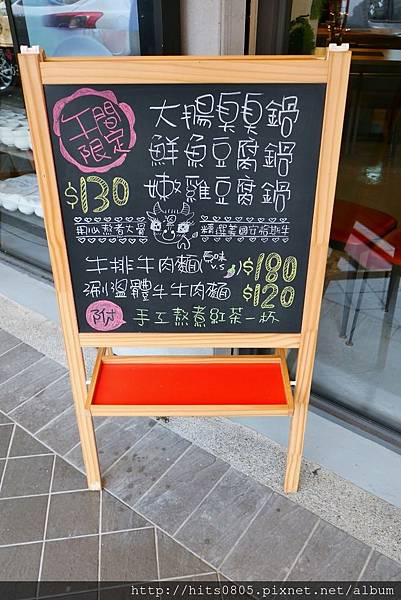 午間
限定
大腸臭臭鍋
鮮魚豆腐鍋
嫩雞豆腐鍋
$130
用心熬煮大骨
精選美國安格斯牛
牛排牛肉麵 原味 VS $180
涮 體牛牛肉麵 $120
附 手工熬煮紅茶一杯
http://hits0805.pixnet.net/album